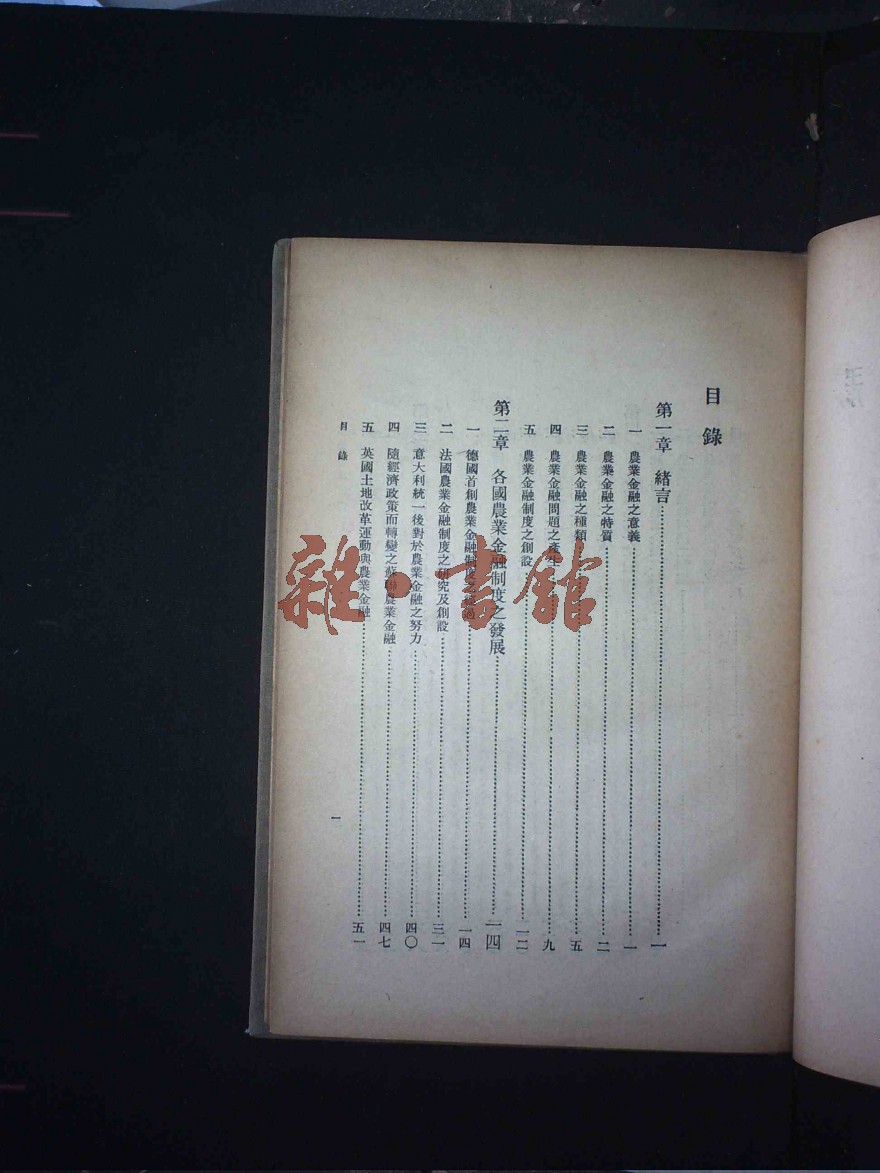 目錄
第一章 緒言……一
一 農業金融之意義……一
二 農業金融之特質……二
三 農業金融之種類……五
四 農業金融問題之產生……九
五 農業金融制度之創設……一二
第二章 各國農業金融制度之發展……一四
一 德國首創農業金融制度之經過……一四
二 法國農業金融制度之研究及創設……三一
三 意大利統一後對於農業金融之努力……四〇
四 隨經濟政策而轉變之蘇聯農業金融……四七
五 英國土地改革運動與農業金融……五一
目錄
一
雜·書館